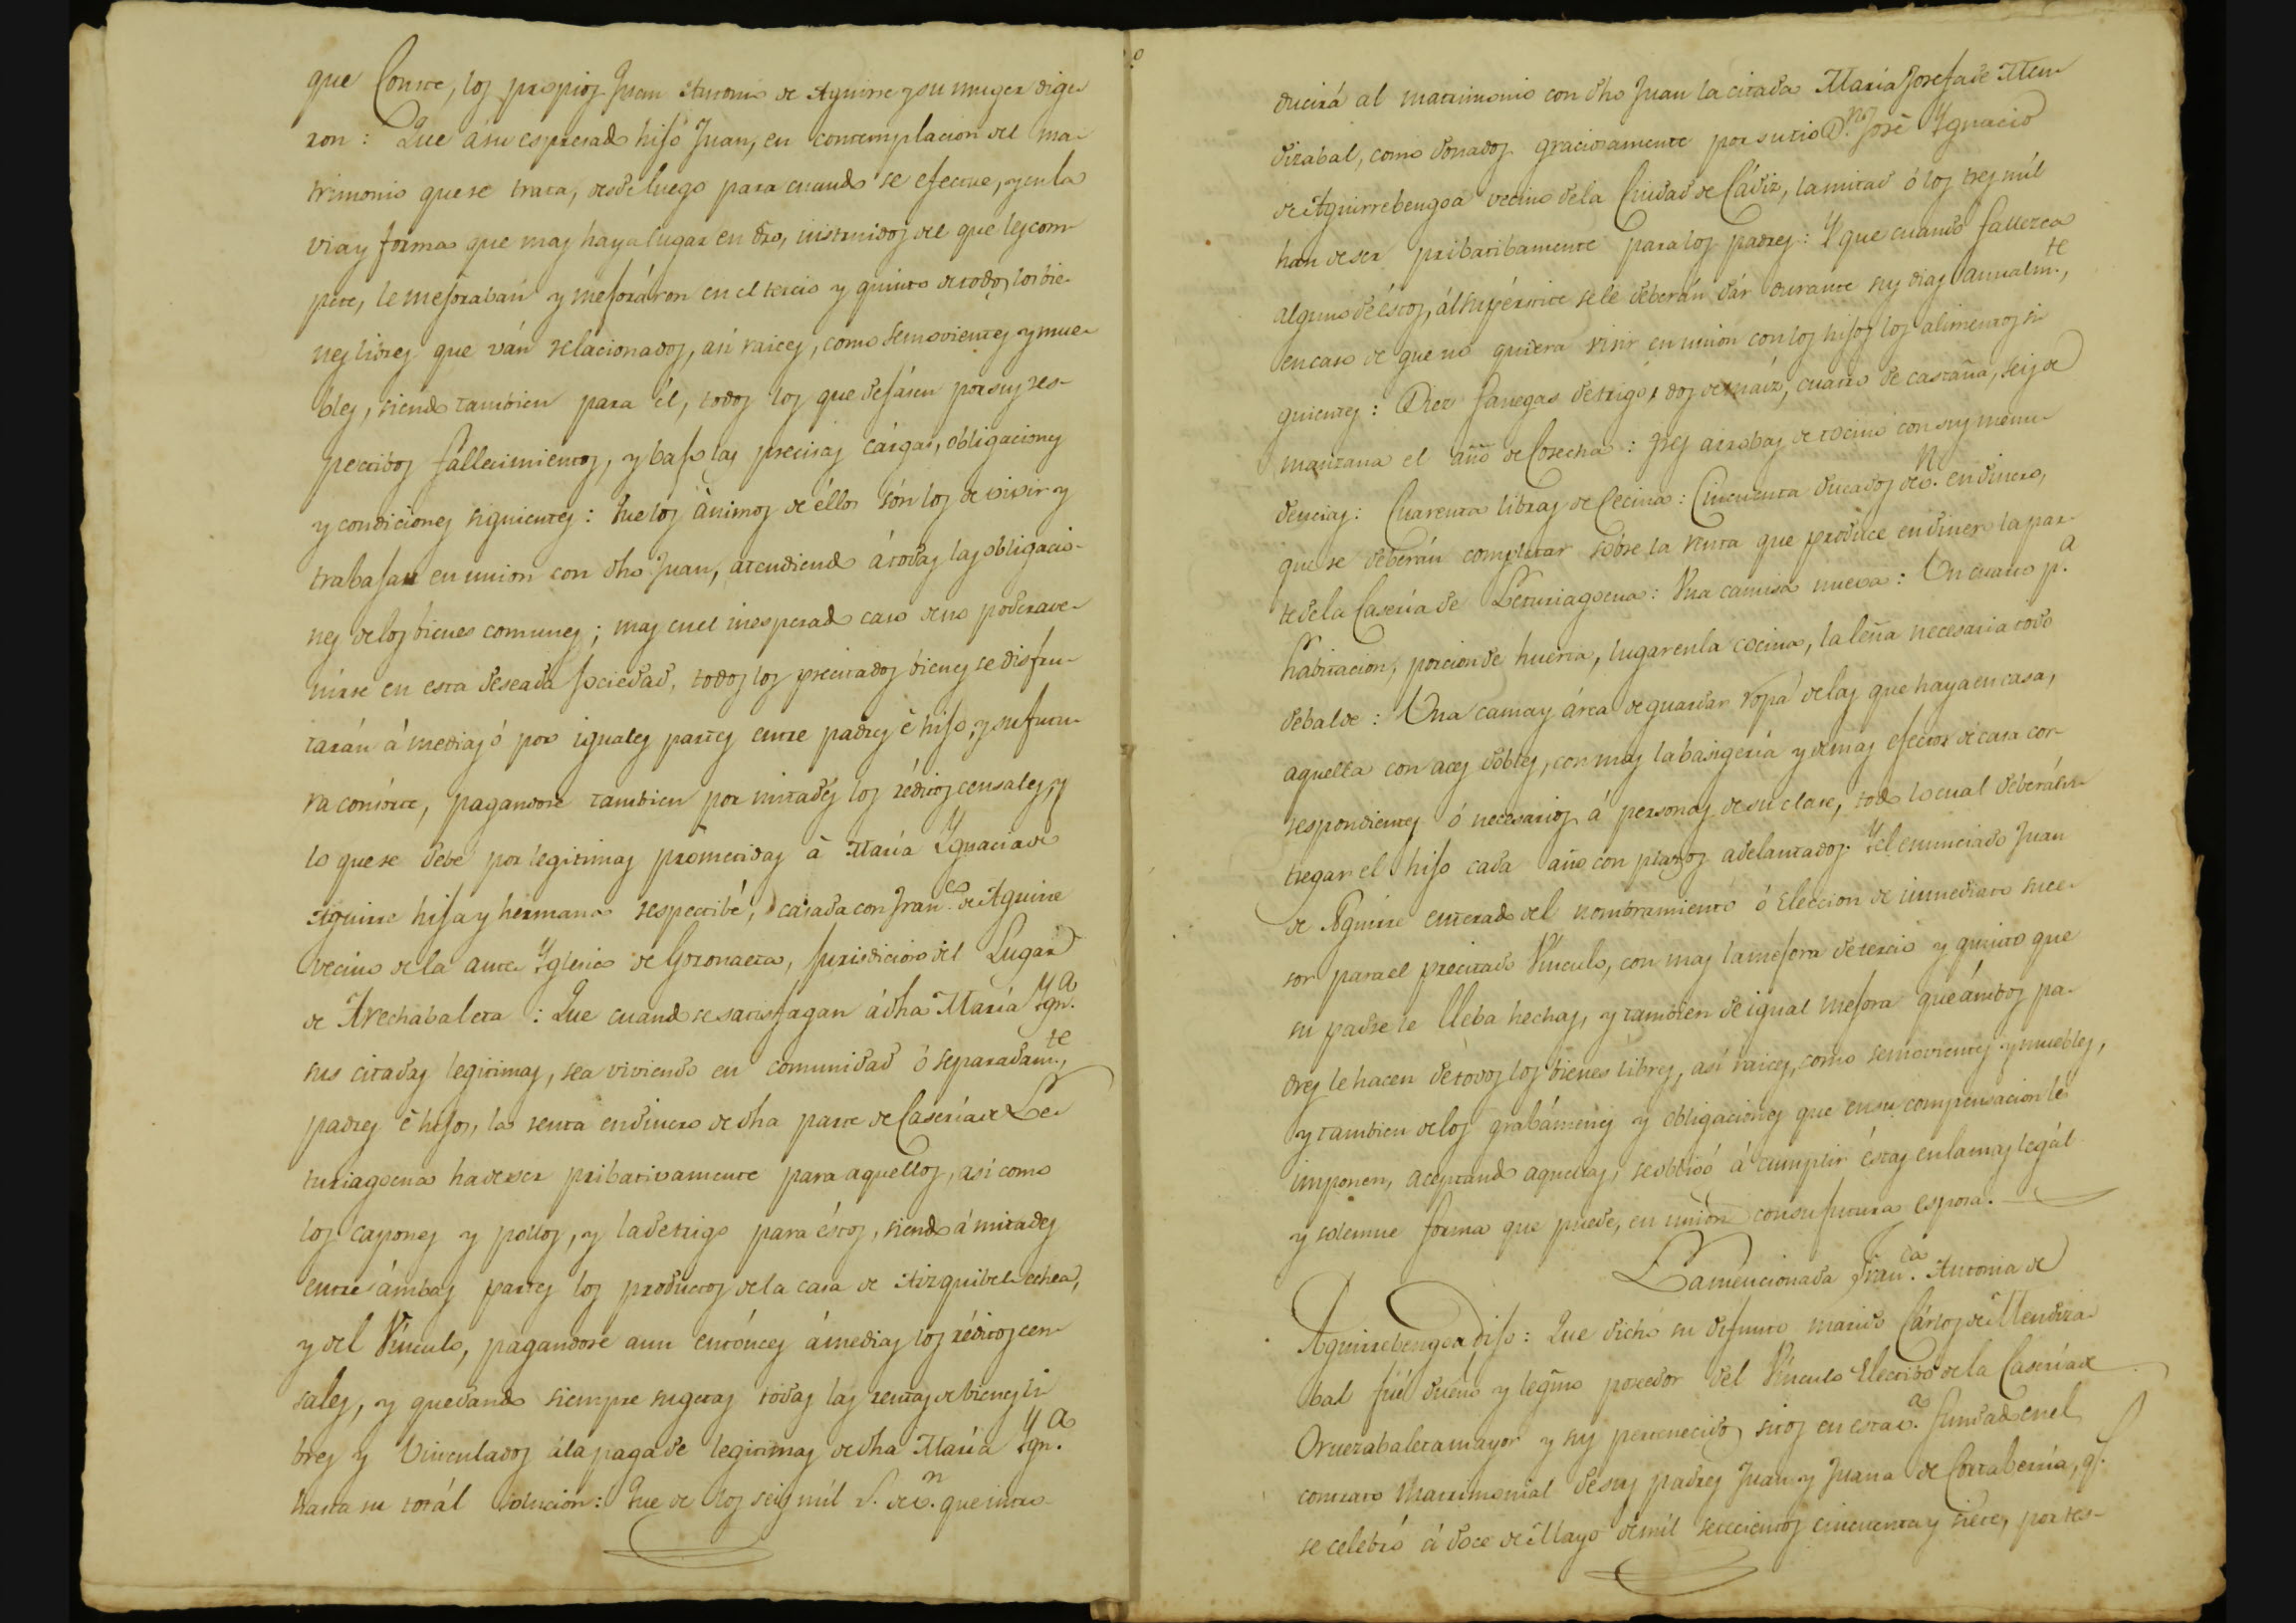 que Conste, los propios Juan Antonio de Aguirre y su muger dige-
ron: Que á su espresado hijo Juan, en contemplacion del ma-
trimonio que se trata, desde luego para cuando se efectue, y en la
via y forma que mas haya lugar en dro, instruidos del que les com-
pete, le mejoraban y mejoráron en el tercio y quinto de todos los bie-
nes libres que ván relacionados, asi raices, como semovientes y mue-
bles, siendo tambien para él, todos los que dejásen por sus res-
pectibos fallecimientos, y bajo las precisas cárgas, obligaciones
y condiciones siguientes: Que los ánimos de éllos són los de vivir y
trabajar en union con dho Juan, atendiendo á todas las obligacio-
nes de los bienes comunes; mas en el inesperado caso de no poder ave-
nirse en esta deseada sociedad, todos los precitados bienes se disfru-
tarán á medias ó por iguales partes entre padres é hijo, y su futu-
ra consórte, pagandose tambien por mitades los réditos censales, y
lo que se debe por legitimas prometidas á María Ygnacia de
Aguirre hija y hermana respectibé, casada con Fran.co de Aguirre
vecino de la ante Yglesia de Goronaeta, jurisdicion del Lugar
de Arechabaleta: Que cuando se satisfagan á dha María Ygn.a
sus citadas legitimas, sea viviendo en comunidad ó separadam.te,
padres é hijos, la renta en dinero de dha parte de Casería de Le-
turiagoena ha de ser pribativamente para aquellos, asi como
los capones y pollos, y la de trigo para éstos, siendo á mitades
entre ámbas partes los productos de la casa de Aizquibel echea,
y del Vínculo, pagandose aun entónces á medias los réditos cen-
sales, y quedando siempre sugetas todas las rentas de bienes li-
bres y Vinculados á la paga de legitimas de dha María Ygn.a
hasta su totál solucion: Que de los seis mil r.s de v.n que intro-
ducirá al matrimonio con dho Juan la citada María Josefa de Men-
dizabal, como donados graciosamente por su tio D.n José Ygnacio
de Aguirrebengoa vecino de la Ciudad de Cádiz, la mitad ó los tres mil
han de ser pribatibamente para los padres: Y que cuando fallezca
alguno de éstos, ál supérstite se le deberán dár durante sus dias anualm.te,
en caso de que no quisera vivir en union con los hijos los alimentos si-
guientes: Diez fanegas de trigo, dos de maíz, cuatro de castaña, seis de
manzana el año de Cosecha: tres arrobas de tocino con sus menu-
dencias: Cuarenta libras de Cecina: Cincuenta ducados de v.n en dinero,
que se deberán completar sobre la renta que produce en dinero la par-
te de la Casería de Leturiagoena: Una camisa nueva: Un cuarto p.a
habitacion, porcion de huerta, lugar en la cocina, la leña necesaria todo
debalde: Una cama y árca de guardar ropa de las que haya en casa,
aquella con aces dobles, con mas la basigería y demas efectos de casa cor-
respondientes ó necesarios á personas de su clase, todo lo cual deberá en-
tregar el hijo cada año con plazos adelantados. Y el enunciado Juan
de Aguirre enterado del nombramiento ó Eleccion de inmediato suce-
sor para el precitado Vínculo, con mas la mejora de tercio y quinto que
su padre le lleba hechas, y tambien de igual mejora que ámbos pa-
dres le hacen de todos los bienes libres, así raices, como semovientes y muebles,
y tambien de los grabámenes y obligaciones que en su compensacion le
imponen, aceptando aquellas, se obligó á cumplir éstas en la mas legál
y solemne forma que puede, en union con su futura esposa.
La mencionada Fran.ca Antonia de
Aguirrebengoa, dijo: Que dicho su difunto marido Cárlos de Mendiza-
bal fué dueño y legmo poseedor del Vínculo Electibo de la Casería de
Oruezabaleta mayor y sus pertenecidos, sitos en esta v.a fundado en el
contrato Matrimonial de sus padres Juan y Juana de Cortaberria, q.e
se celebró á doce de Mayo de mil setecientos cincuenta y siete, por tes-